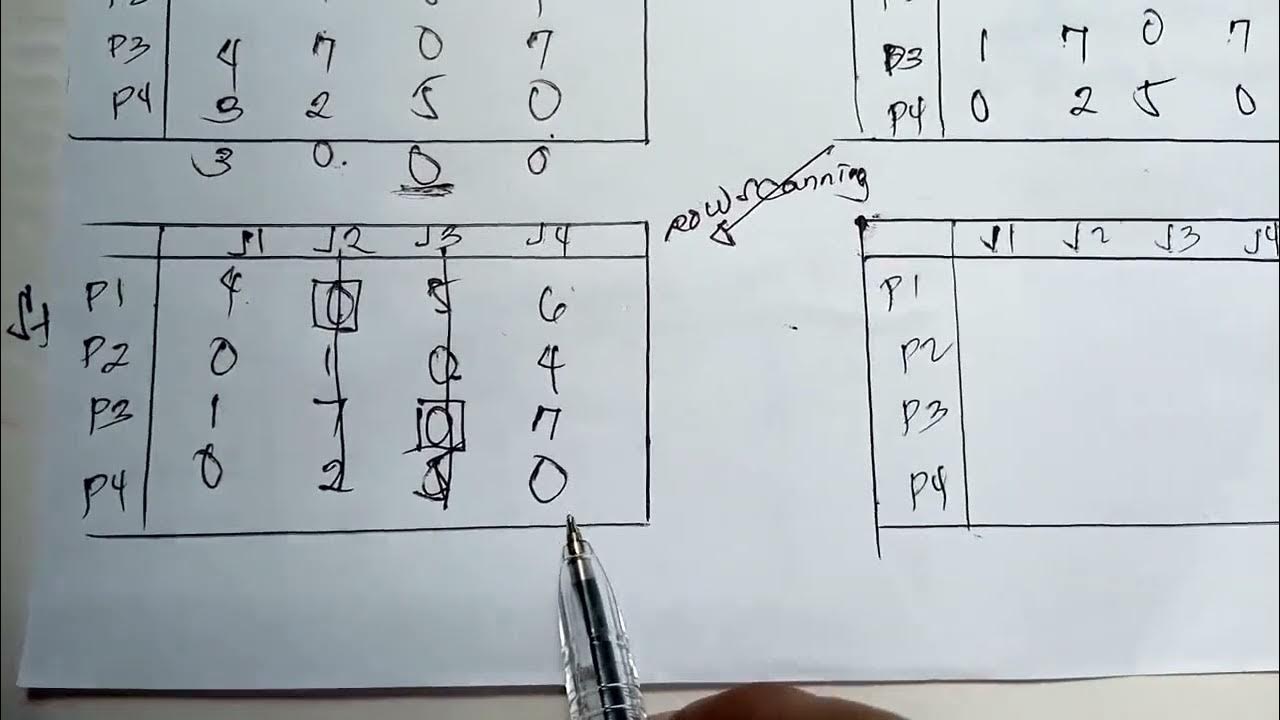 P3 4 7 0 7
P4 3 2 5 0
3 0. 0 0
P3 1 7 0 7
P4 0 2 5 0
Row scanning
J1 J2 J3 J4
P1 4 0 5 6
P2 0 1 0 4
P3 1 7 0 7
P4 0 2 5 0
J1 J2 J3 J4
P1
P2
P3
P4